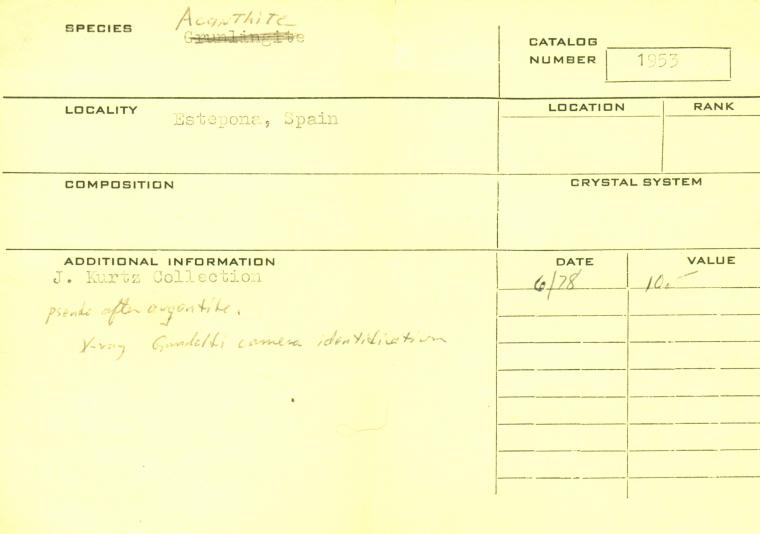 SPECIES
Acanthite
Grunlingite
CATALOG
NUMBER
1953
LOCALITY
Estepona, Spain
LOCATION
RANK
COMPOSITION
CRYSTAL SYSTEM
ADDITIONAL INFORMATION
J. Kurtz Collection
DATE
VALUE
6/78
10.-
pseudo after argentite.
X-ray Gandolfi camera identification